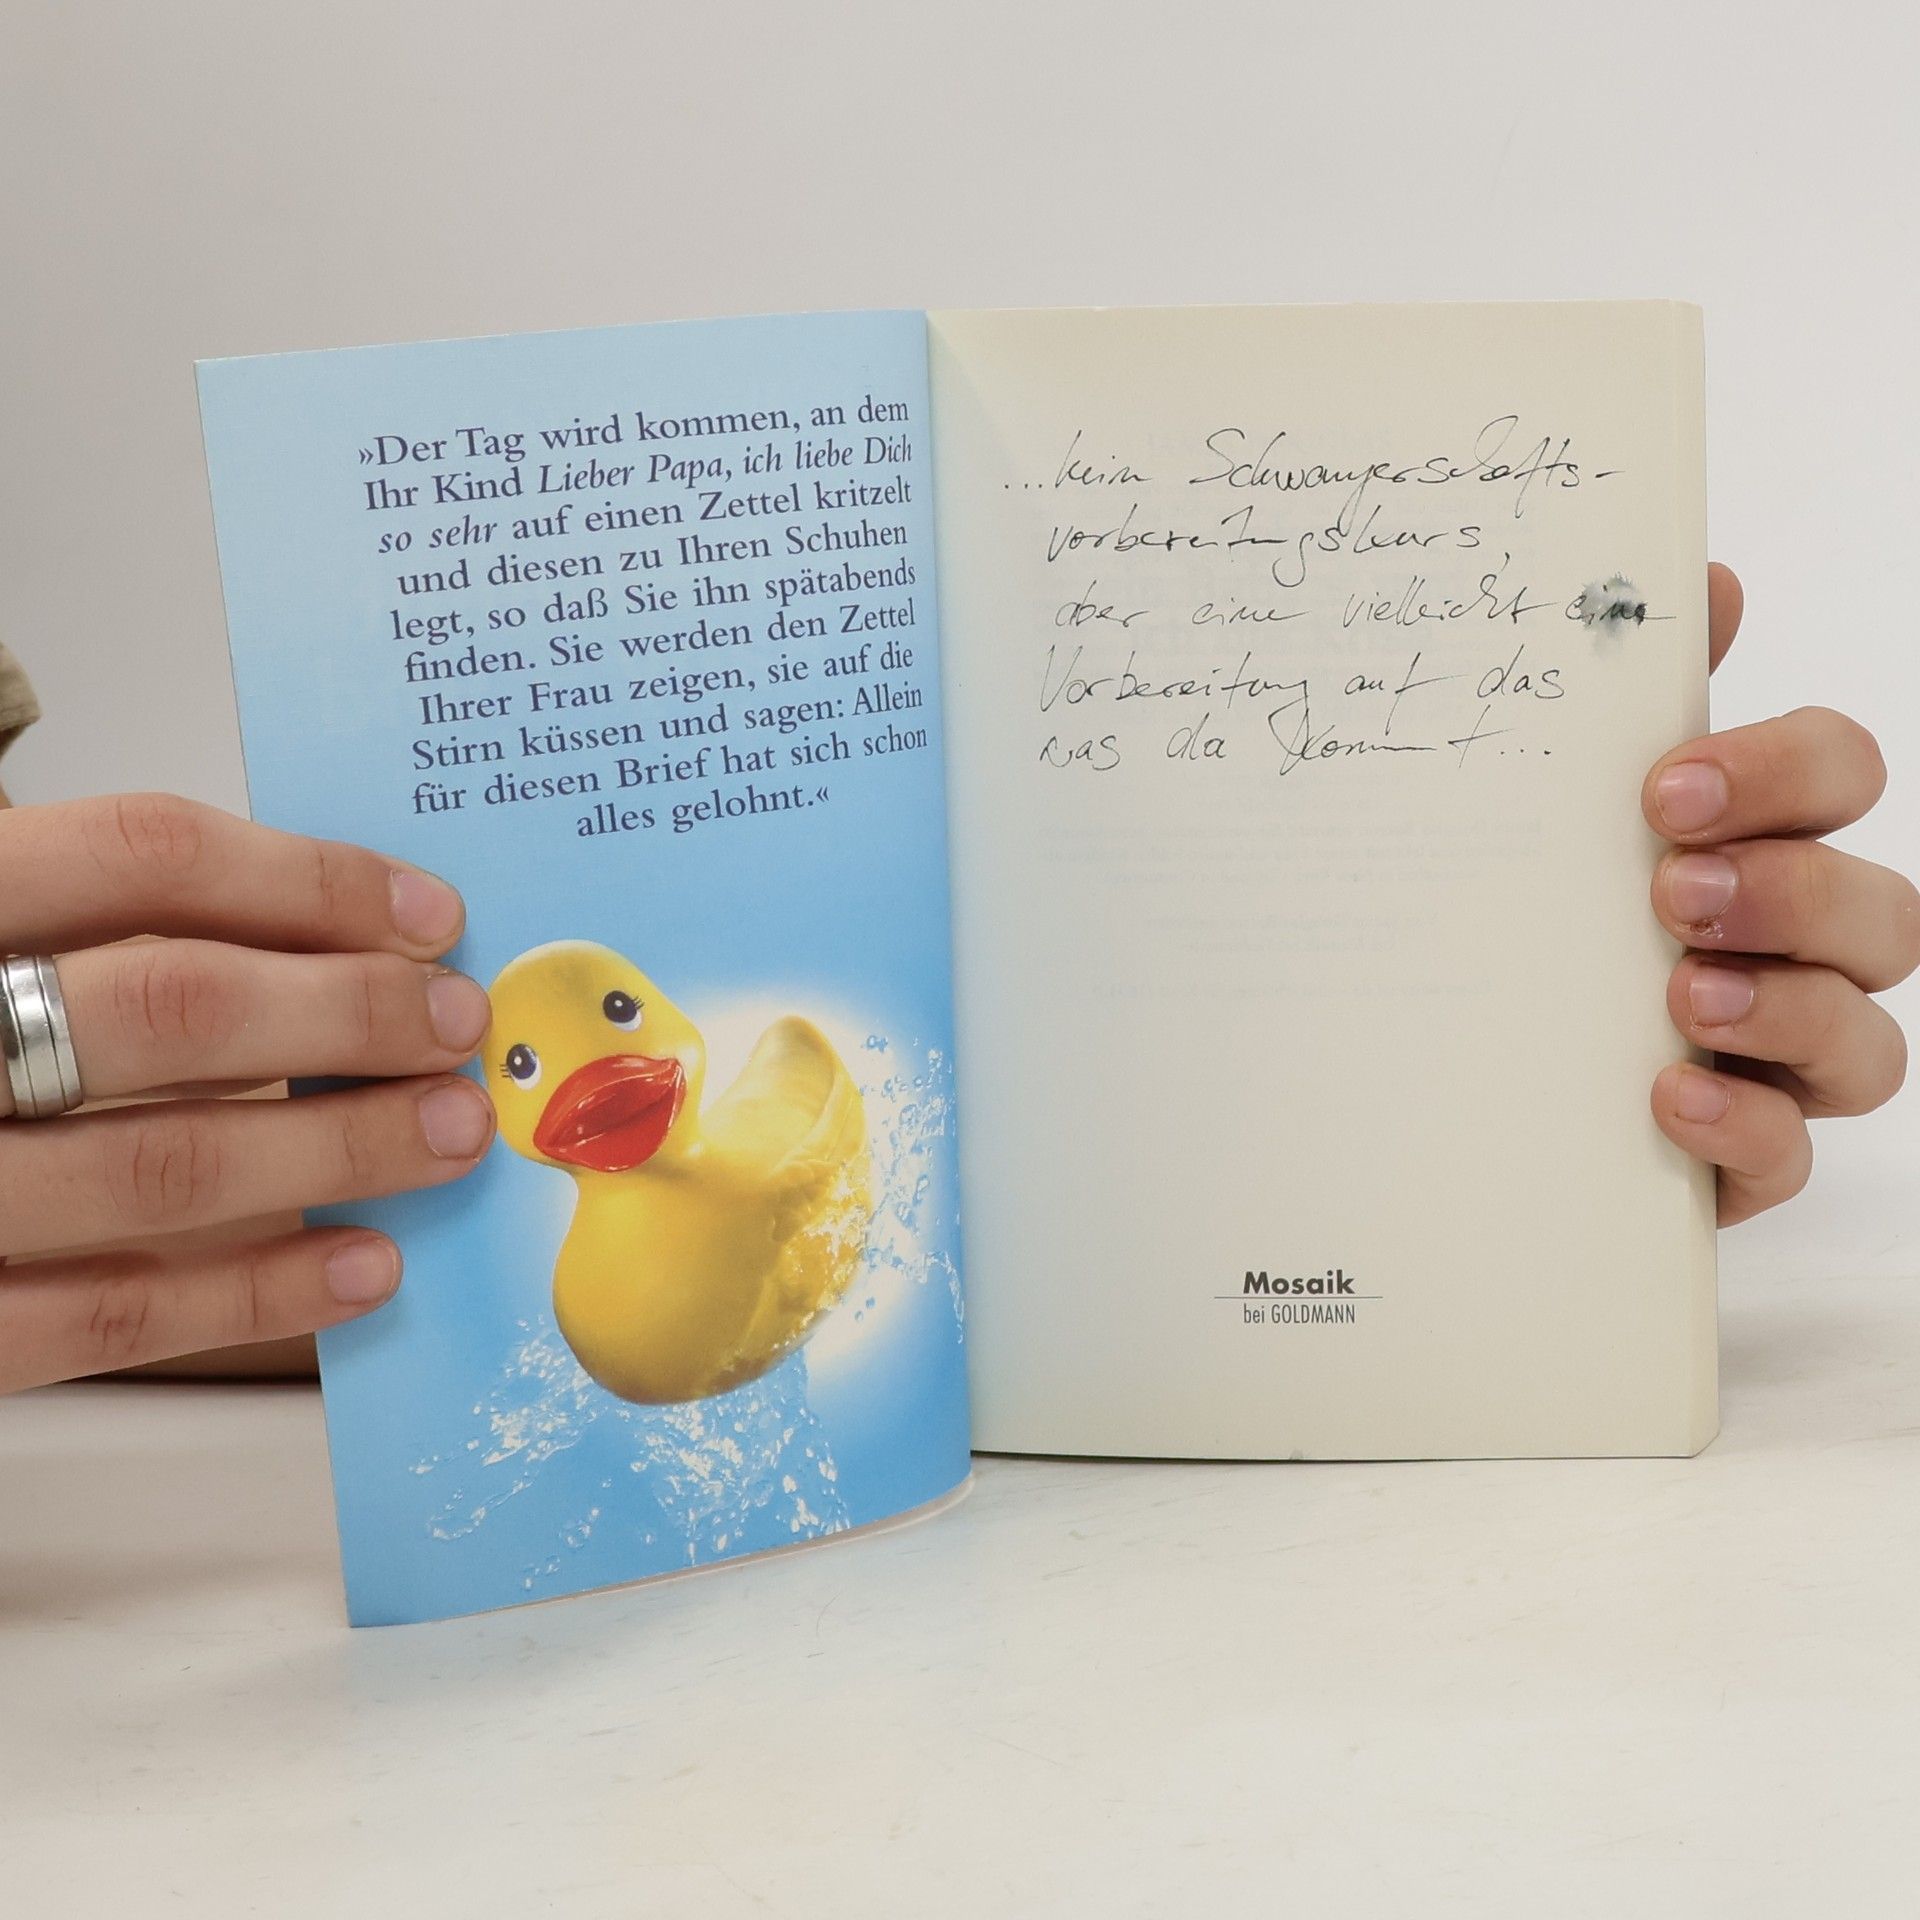 »Der Tag wird kommen, an dem
Ihr Kind Lieber Papa, ich liebe Dich
so sehr auf einen Zettel kritzelt
und diesen zu Ihren Schuhen
legt, so daß Sie ihn spätabends
finden. Sie werden den Zettel
Ihrer Frau zeigen, sie auf die
Stirn küssen und sagen: Allein
für diesen Brief hat sich schon
alles gelohnt.«
...kein Schwangerschafts-
vorbereitungskurs,
aber eine vielleicht eine
Vorbereitung auf das
was da kommt...
Mosaik
bei GOLDMANN